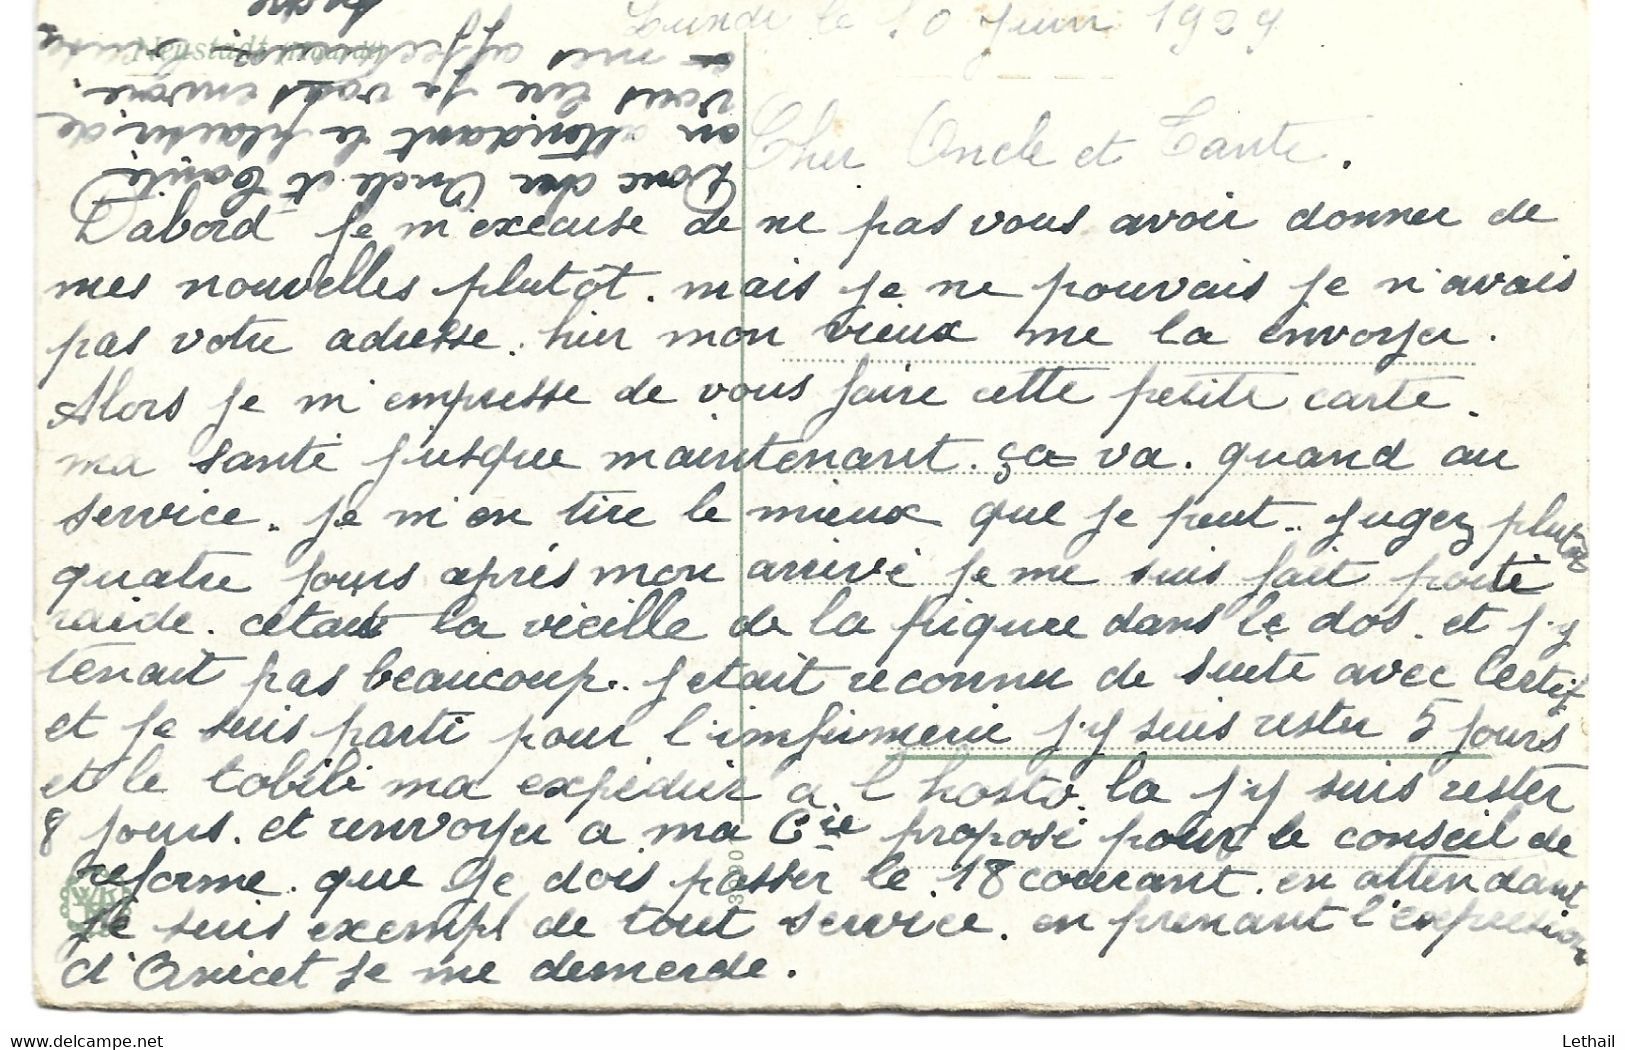 Lundi le 10 Juin 1929
Neustadt
Cher Oncle et Tante.
D'abord je m'execuse de ne pas vous avoir donner de
mes nouvelles plutôt. mais je ne pouvais je n'avais
pas votre adresse. hier mon vieux me la envoyer.
Alors je m'empresse de vous faire cette petite carte.
ma santé jusque maintenant. ça va. quand au
service. je m'en tire le mieux que je peut. jugez plutôt
quatre jours après mon arrivé je me suis fait porté
raide. cétait la vieille de la piqure dans le dos. et j'y
tenait pas beaucoup. j etait reconnu de suite avec Certif
et je suis parti pour l'infirmerie j'y suis rester 5 jours
et le tobibi ma expédier a l hosto. la j'y suis rester
8 jours. et renvoyer a ma Cie proposé pour le conseil de
reforme. que je dois passer le 18 courant. en attendant
je suis exempl de tout service. en prenant l'expression
d'Anicet je me demerde.
Donc cher Oncle et Tante
en attendant le plaisir de
vous lire je vous envoie.
mes affectueuse
390901
Lethail